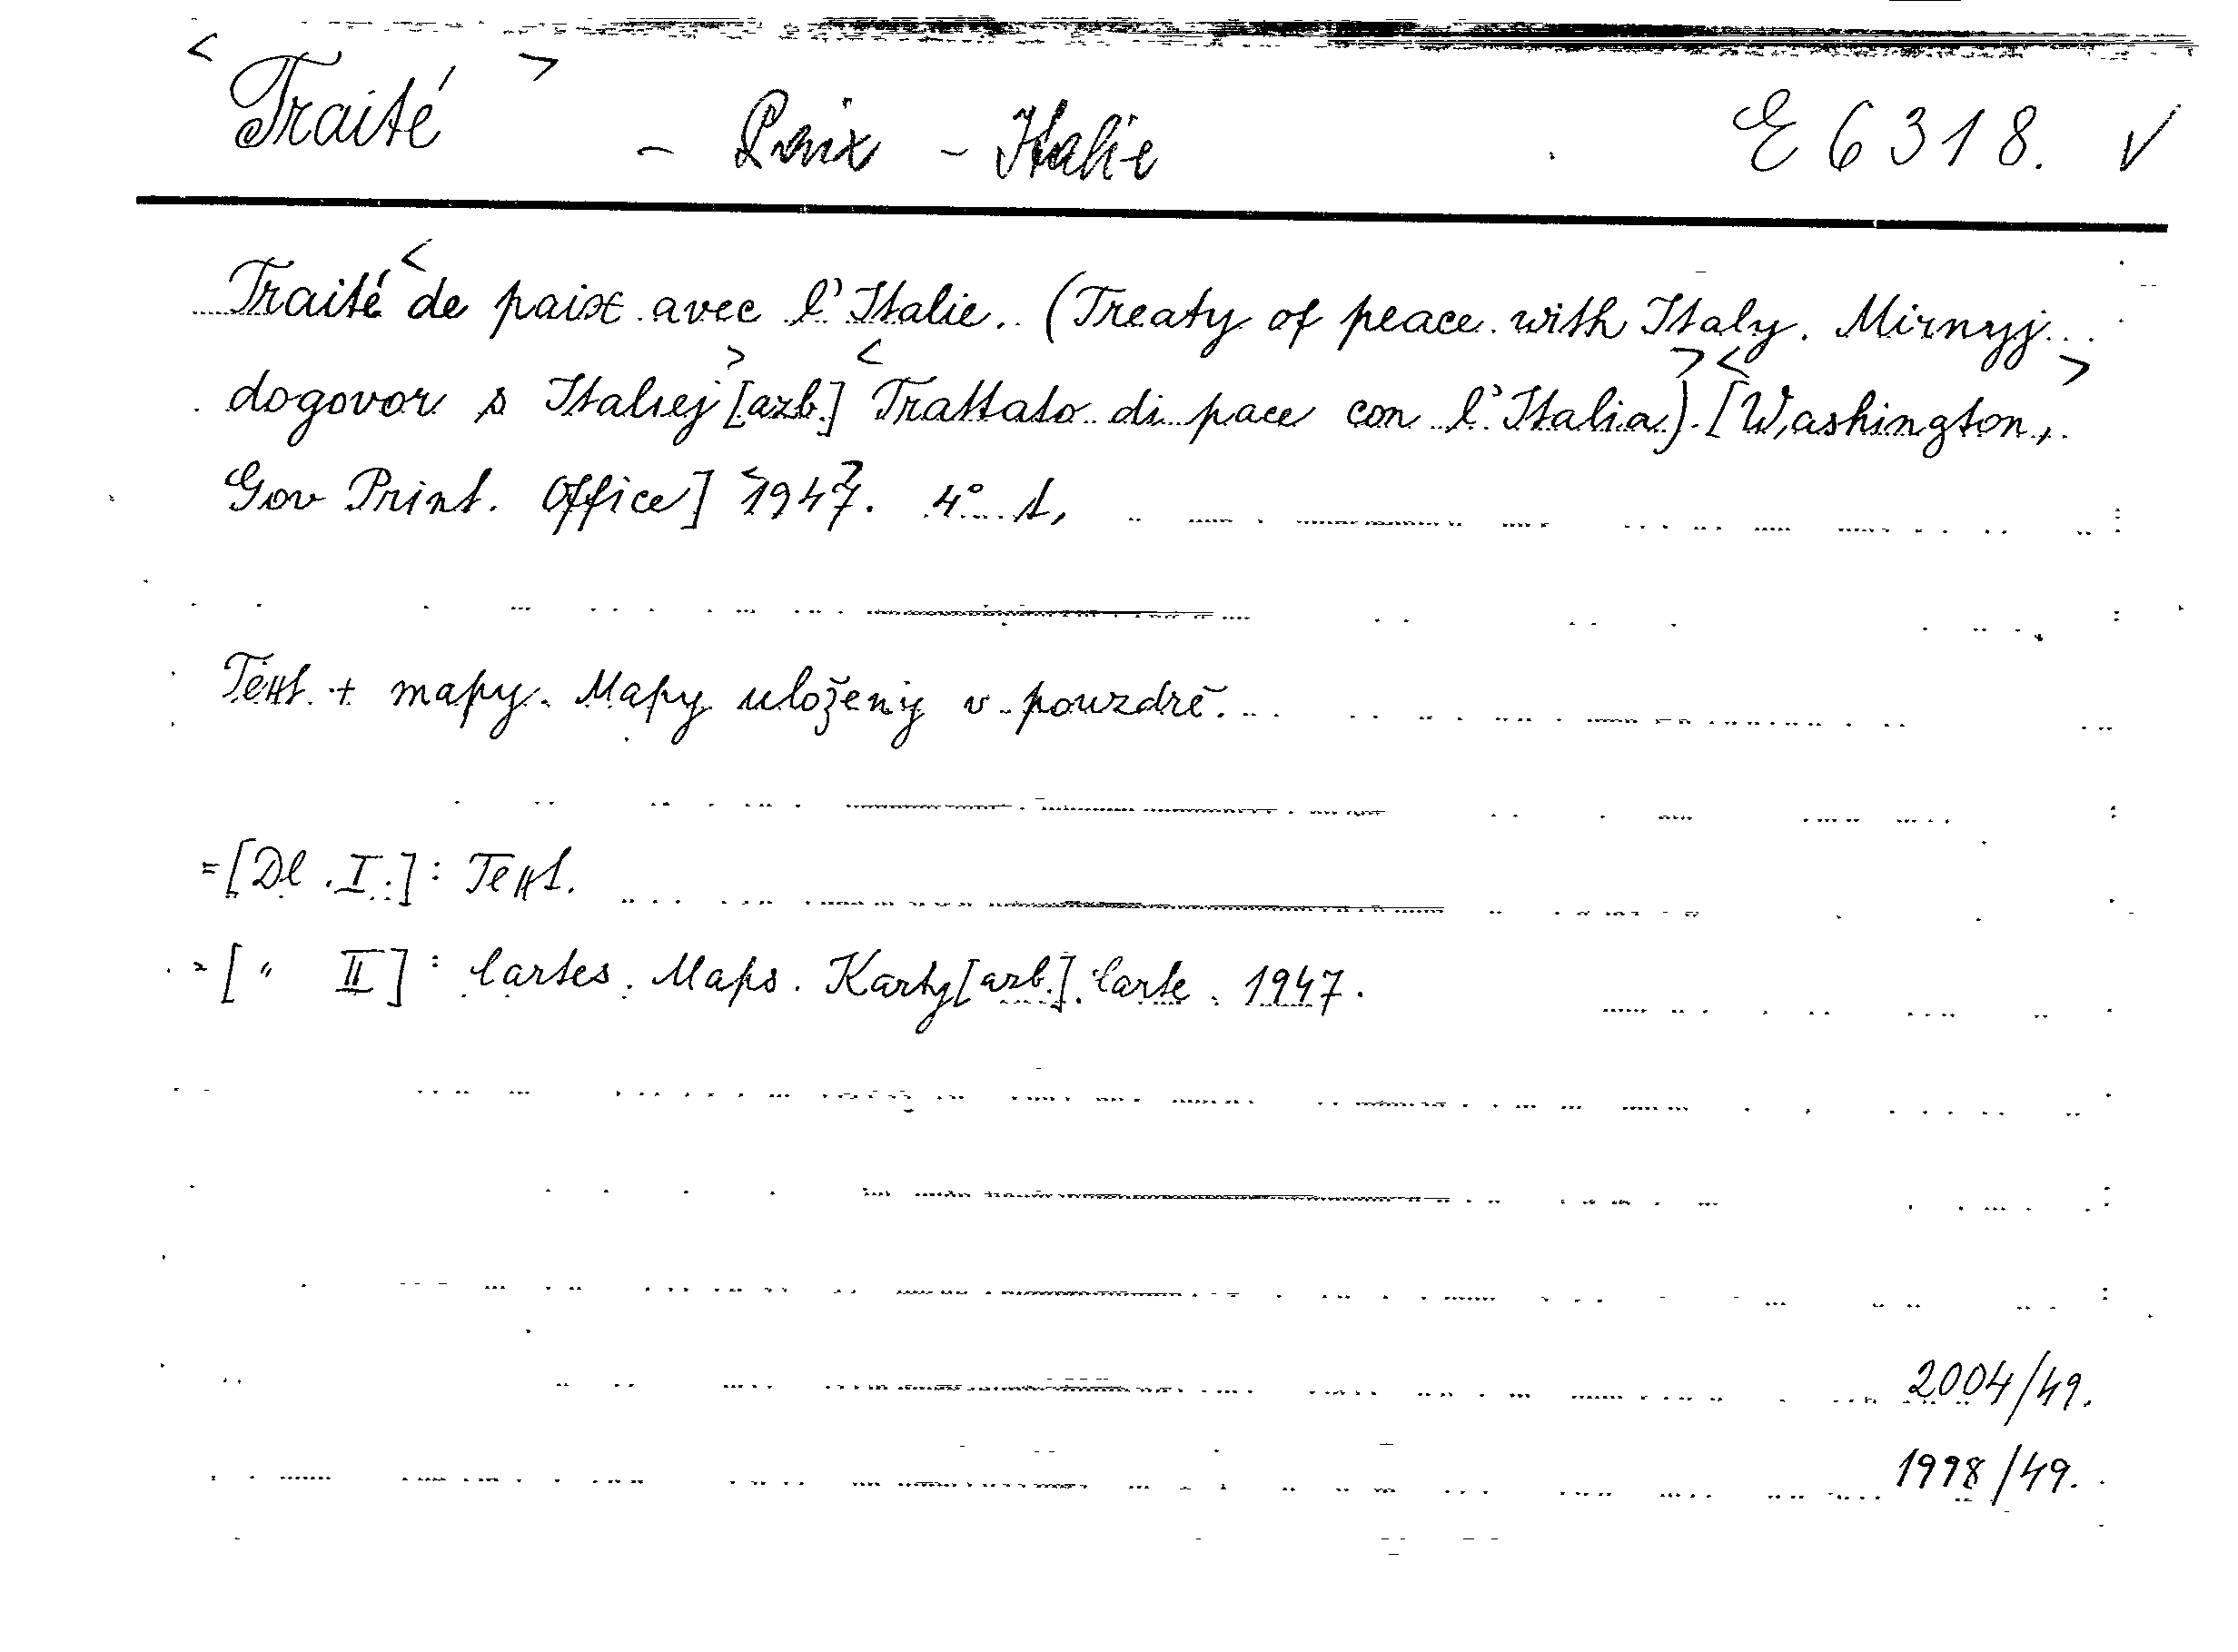 <Traité> - Paix - Italie E 6318. √
Traité <de paix avec l'Italie. (Treaty of peace with Italy. Mirnyj
dogovor s Italiej> [azb.] <Trattato di pace con l'Italia).> <[Washington,>
Gov Print. Office] <1947>. 4° t,
Text + mapy. Mapy uloženy v pouzdře.
=[Dl. I.]: Text.
=[" II]: Cartes. Maps. Karty [azb.]. Carte. 1947.
2004/49.
1998/49.